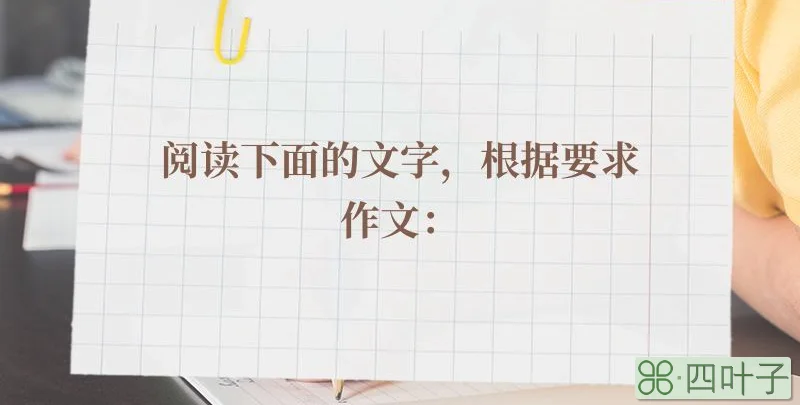 阅读下面的文字，根据要求
作文：
⌘·四叶子